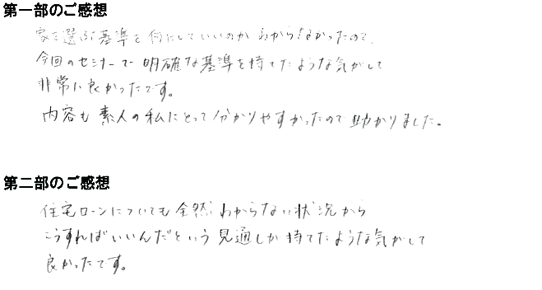 第一部のご感想
家を選ぶ基準を何にしていいのか わからなかったので、
今回のセミナーで 明確な基準を持てたような気がして
非常に良かったです。
内容も 素人の私にとって分かりやすかったので助かりました。
第二部のご感想
住宅ローンについても全然わからない状況から
こうすればいいんだという見通しが持てたような気がして
良かったです。